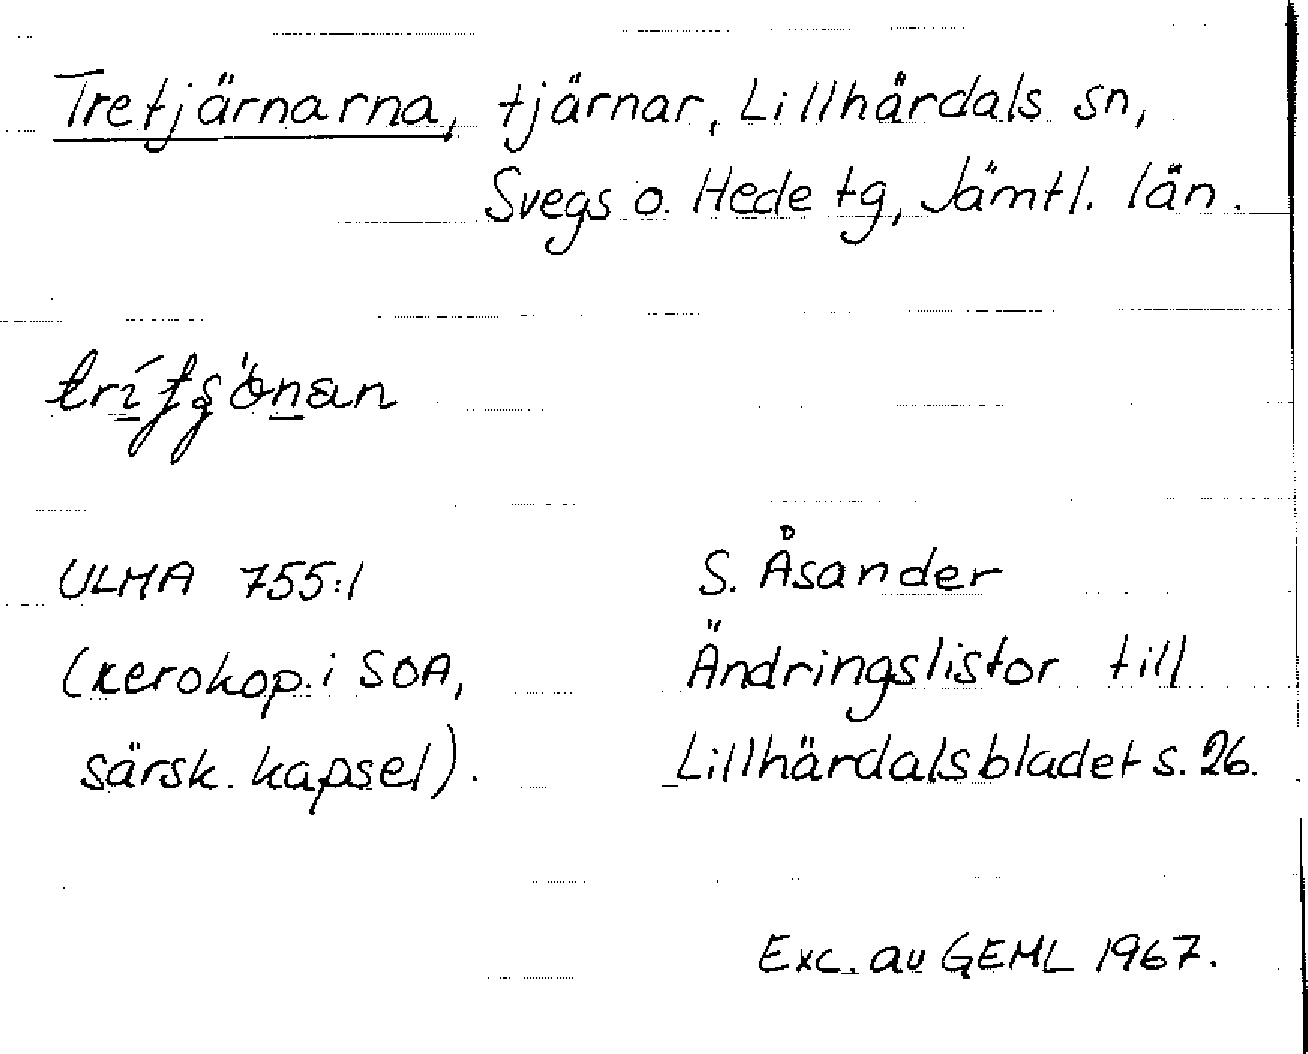 Tretjärnarna, tjärnar, Lillhärdals sn,
Svegs o. Hede tg, Jämtl. län.
ULMA 755:1
(xerokop. i SOA,
särsk. kapsel).
S. Åsander
Ändringslistor till
Lillhärdalsbladet s. 26.
Exc. av GEML 1967.